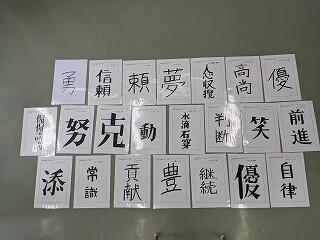 勇
信頼
頼
夢
高尚
優
努
克
動
水滴石穿
判断
笑
前進
添
常識
貢献
豊
継続
優
自律